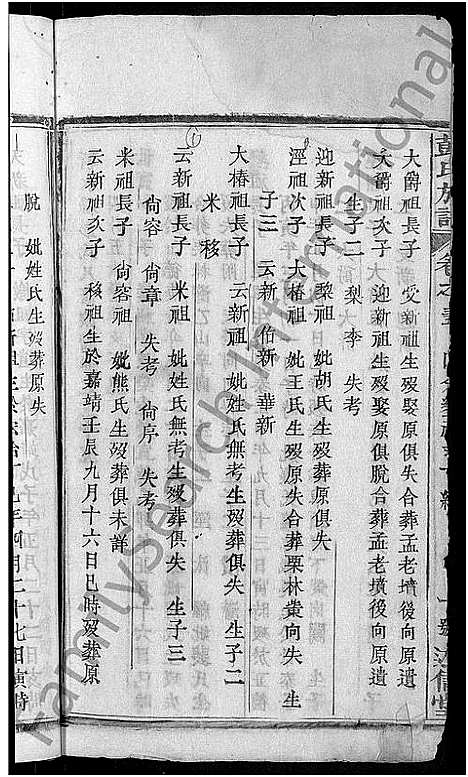 黃氏族譜
大爵祖長子 受新祖生歿娶原俱失合葬孟老墳後向原遺
大爵祖次子 迎新祖生歿娶原俱脫合葬孟老墳後向原遺
生子二 梨 李 失考
迎新祖長子 梨祖 妣胡氏生歿葬俱失
淫祖次子 大椿祖 妣王氏生歿原失合葬栗林賫向失 生
子三 云新 伯新 華新
大椿祖長子 云新祖 妣姓氏無考生歿葬俱失 生子二
米 移
云新祖長子 米祖 妣姓氏無考生歿葬俱失 生子三
尙容 尙章 失考 尙序 失考
米祖長子 尙容祖 妣熊氏生歿葬俱未詳
云新祖次子 移祖生於嘉靖壬辰九月十六日巳時歿葬原
脫 妣姓氏生歿葬原失
FamilySearch International